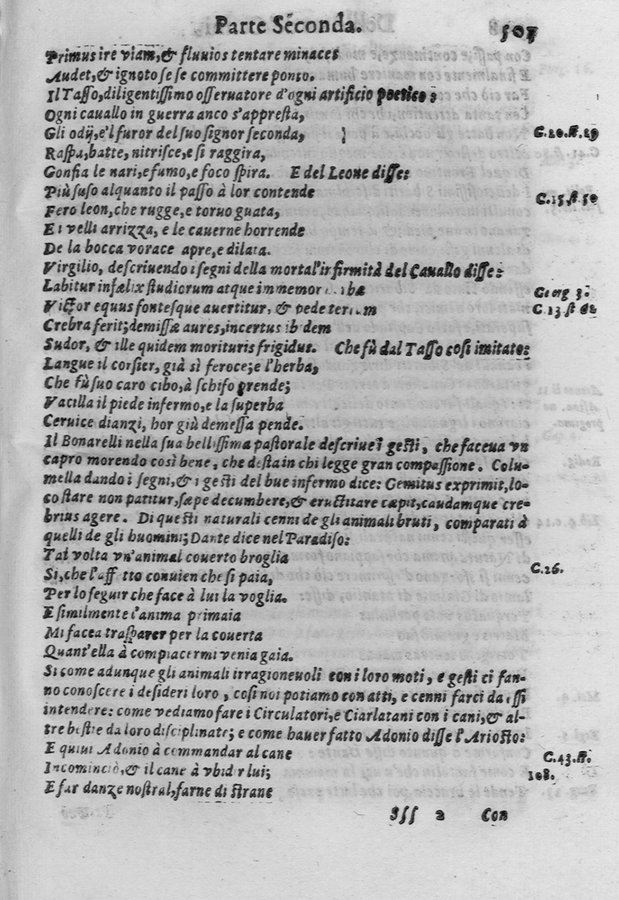 Parte Seconda. 507
Primus ire viam, & fluvios tentare minaces
Audet, & ignoto se se committere ponto.
Il Tasso, diligentissimo osseruatore d'ogni artificio poetico;
Ogni cauallo in guerra anco s'appresta,
Gli odij, e'l furor del suo signor seconda, C.20.st.29
Raspa, batte, nitrisce, e si raggira,
Gonfia le nari, e fumo, e foco spira. E del Leone disse:
Più suso alquanto il passo à lor contende C.15.st.50
Fero leon, che rugge, e toruo guata,
E i velli arrizza, e le cauerne horrende
De la bocca vorace apre, e dilata.
Virgilio, descriuendo i segni della mortal'infirmità del Cauallo disse:
Labitur infælix studiorum atque immemor Georg 3.
Victor equus fontesque auertitur, & pede C.13.st
Crebra ferit; demissæ aures, incertus ibidem
Sudor, & ille quidem morituris frigidus. Che fù dal Tasso così imitato:
Langue il corsier, già sì feroce; e l'herba,
Che fù suo caro cibo, à schifo prende;
Vacilla il piede infermo, e la superba
Ceruice dianzi, hor giù demessa pende.
Il Bonarelli nella sua bellissima pastorale descriue i gesti, che faceua vn
capro morendo così bene, che desta in chi legge gran compassione. Colu-
mella dando i segni, & i gesti del bue infermo dice: Gemitus exprimit, lo-
co stare non patitur, sæpe decumbere, & eructitare cæpit, caudamque cre-
brius agere. Di questi naturali cenni de gli animali bruti, comparati à
quelli de gli huomini; Dante dice nel Paradiso:
Tal volta vn'animal couerto broglia
Sì, che l'affetto conuien che si paia, C.26.
Per lo seguir che face à lui la voglia.
E similmente l'anima primaia
Mi facea trasparer per la couerta
Quant'ella à compiacermi venia gaia.
Si come adunque gli animali irragioneuoli con i loro moti, e gesti ci fan-
no conoscere i desideri loro, così noi potiamo con atti, e cenni farci da essi
intendere: come vediamo fare i Circulatori, e Ciarlatani con i cani, & al-
tre bestie da loro disciplinate; e come hauer fatto Adonio disse l'Ariosto:
E quiui Adonio à commandar al cane C.43.st.
Incominciò, & il cane à vbidir lui; 108.
E far danze nostral, farne di strane
Sss 2 Con